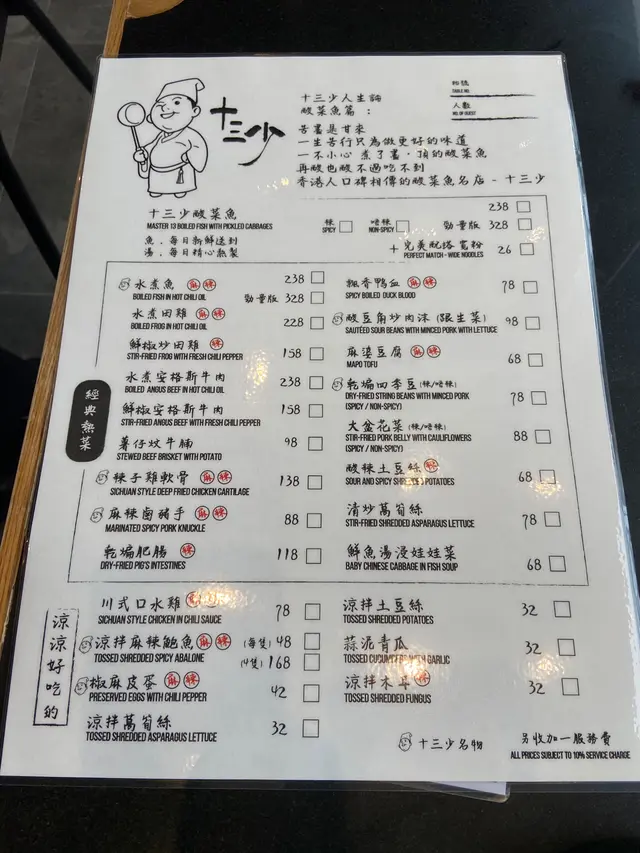 十三少
十三少人生論
酸菜魚篇：
苦盡是甘來
一生苦行只為做更好的味道
一不小心 煮了畫·頂的酸菜魚
再酸也酸不過吃不到
香港人口碑相傳的酸菜魚名店 - 十三少
枱號
TABLE NO.
人數
NO. OF GUEST
238
十三少酸菜魚
MASTER 13 BOILED FISH WITH PICKLED CABBAGES
辣
SPICY
唔辣
NON-SPICY
勁量版 328
魚，每日新鮮送到
湯，每日精心熬製
+ 完美配搭寬粉 26
PERFECT MATCH - WIDE NOODLES
經典熱菜
水煮魚 麻 辣 238
BOILED FISH IN HOT CHILI OIL 勁量版 328
水煮田雞 麻 辣
BOILED FROG IN HOT CHILI OIL 228
鮮椒炒田雞 辣
STIR-FRIED FROG WITH FRESH CHILI PEPPER 158
水煮安格斯牛肉
BOILED ANGUS BEEF IN HOT CHILI OIL 238
鮮椒安格斯牛肉
STIR-FRIED ANGUS BEEF WITH FRESH CHILI PEPPER 158
薯仔炆牛腩
STEWED BEEF BRISKET WITH POTATO 98
辣子雞軟骨 麻 辣
SICHUAN STYLE DEEP FRIED CHICKEN CARTILAGE 138
麻辣鹵豬手 麻 辣
MARINATED SPICY PORK KNUCKLE 88
乾煸肥腸 辣
DRY-FRIED PIG'S INTESTINES 118
粗香鴨血 麻 辣
SPICY BOILED DUCK BLOOD 78
酸豆角炒肉沫 (跟生菜)
SAUTÉED SOUR BEANS WITH MINCED PORK WITH LETTUCE 98
麻婆豆腐 麻 辣
MAPO TOFU 68
乾煸四季豆 (辣/唔辣)
DRY-FRIED STRING BEANS WITH MINCED PORK 78
(SPICY / NON-SPICY)
大盆花菜 (辣/唔辣)
STIR-FRIED PORK BELLY WITH CAULIFLOWERS 88
(SPICY / NON-SPICY)
酸辣土豆絲 辣
SOUR AND SPICY SHREDDED POTATOES 68
清炒萵筍絲
STIR-FRIED SHREDDED ASPARAGUS LETTUCE 78
鮮魚湯浸娃娃菜
BABY CHINESE CABBAGE IN FISH SOUP 68
涼涼好吃的
川式口水雞
SICHUAN STYLE CHICKEN IN CHILI SAUCE 78
涼拌麻辣鮑魚 麻 辣 (每隻) 48
TOSSED SHREDDED SPICY ABALONE (4隻) 168
椒麻皮蛋 麻 辣
PRESERVED EGGS WITH CHILI PEPPER 42
涼拌萵筍絲
TOSSED SHREDDED ASPARAGUS LETTUCE 32
涼拌土豆絲
TOSSED SHREDDED POTATOES 32
蒜泥青瓜
TOSSED CUCUMBERS WITH GARLIC 32
涼拌木耳 辣
TOSSED SHREDDED FUNGUS 32
十三少名物
另收加一服務費
ALL PRICES SUBJECT TO 10% SERVICE CHARGE